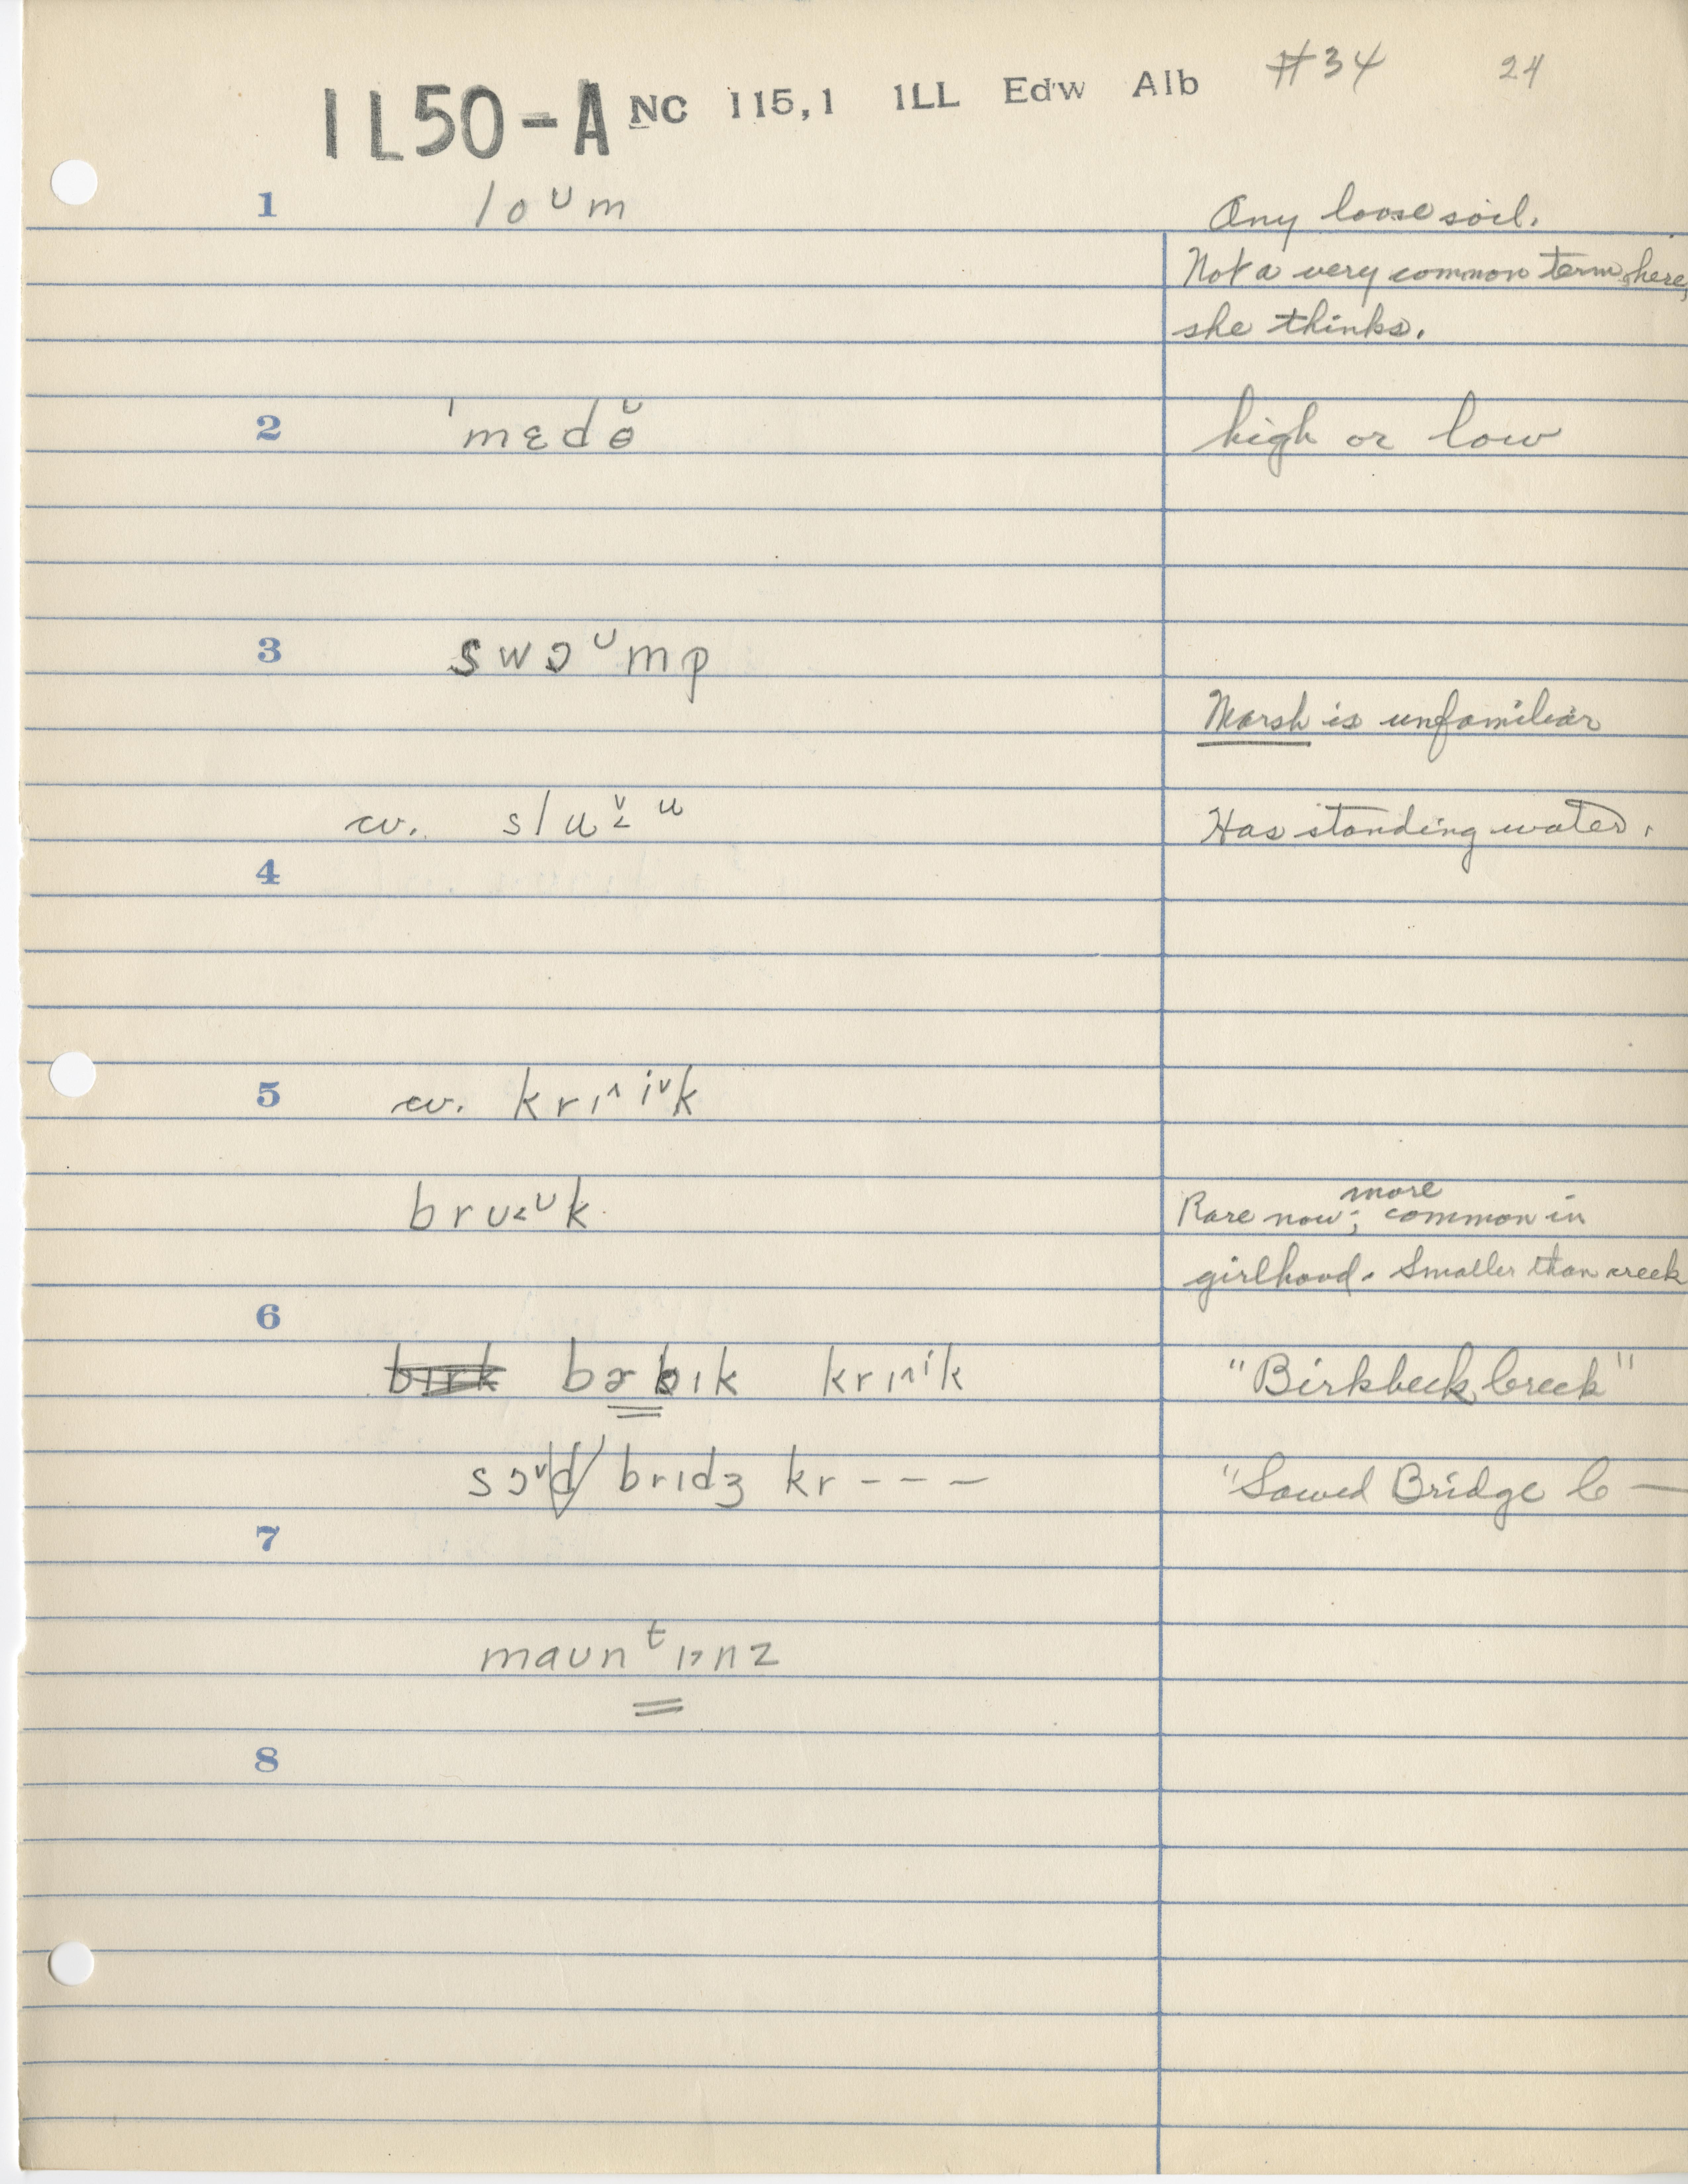 #34 24
IL50-A NC 115,1 ILL Edw Alb
1 loᴜm Any loose soil.
Not a very common term here,
she thinks.
2 ˈmɛdɵ̆ high or low
3 swɔᴜmp
Marsh is unfamiliar
cv. sluᵛ˂ᵘ Has standing water.
4
5 cv. krɪ^iᵛk
brᴜ˂ᴜk more
Rare now; common in
girlhood. Smaller than creek
6
bɪrk bɚbɪk krɪ^ik "Birkbeck Creek"
sɔᵛd brɪdʒ kr--- "Sawed Bridge C—
7
maunᵗɪ˃nz
8